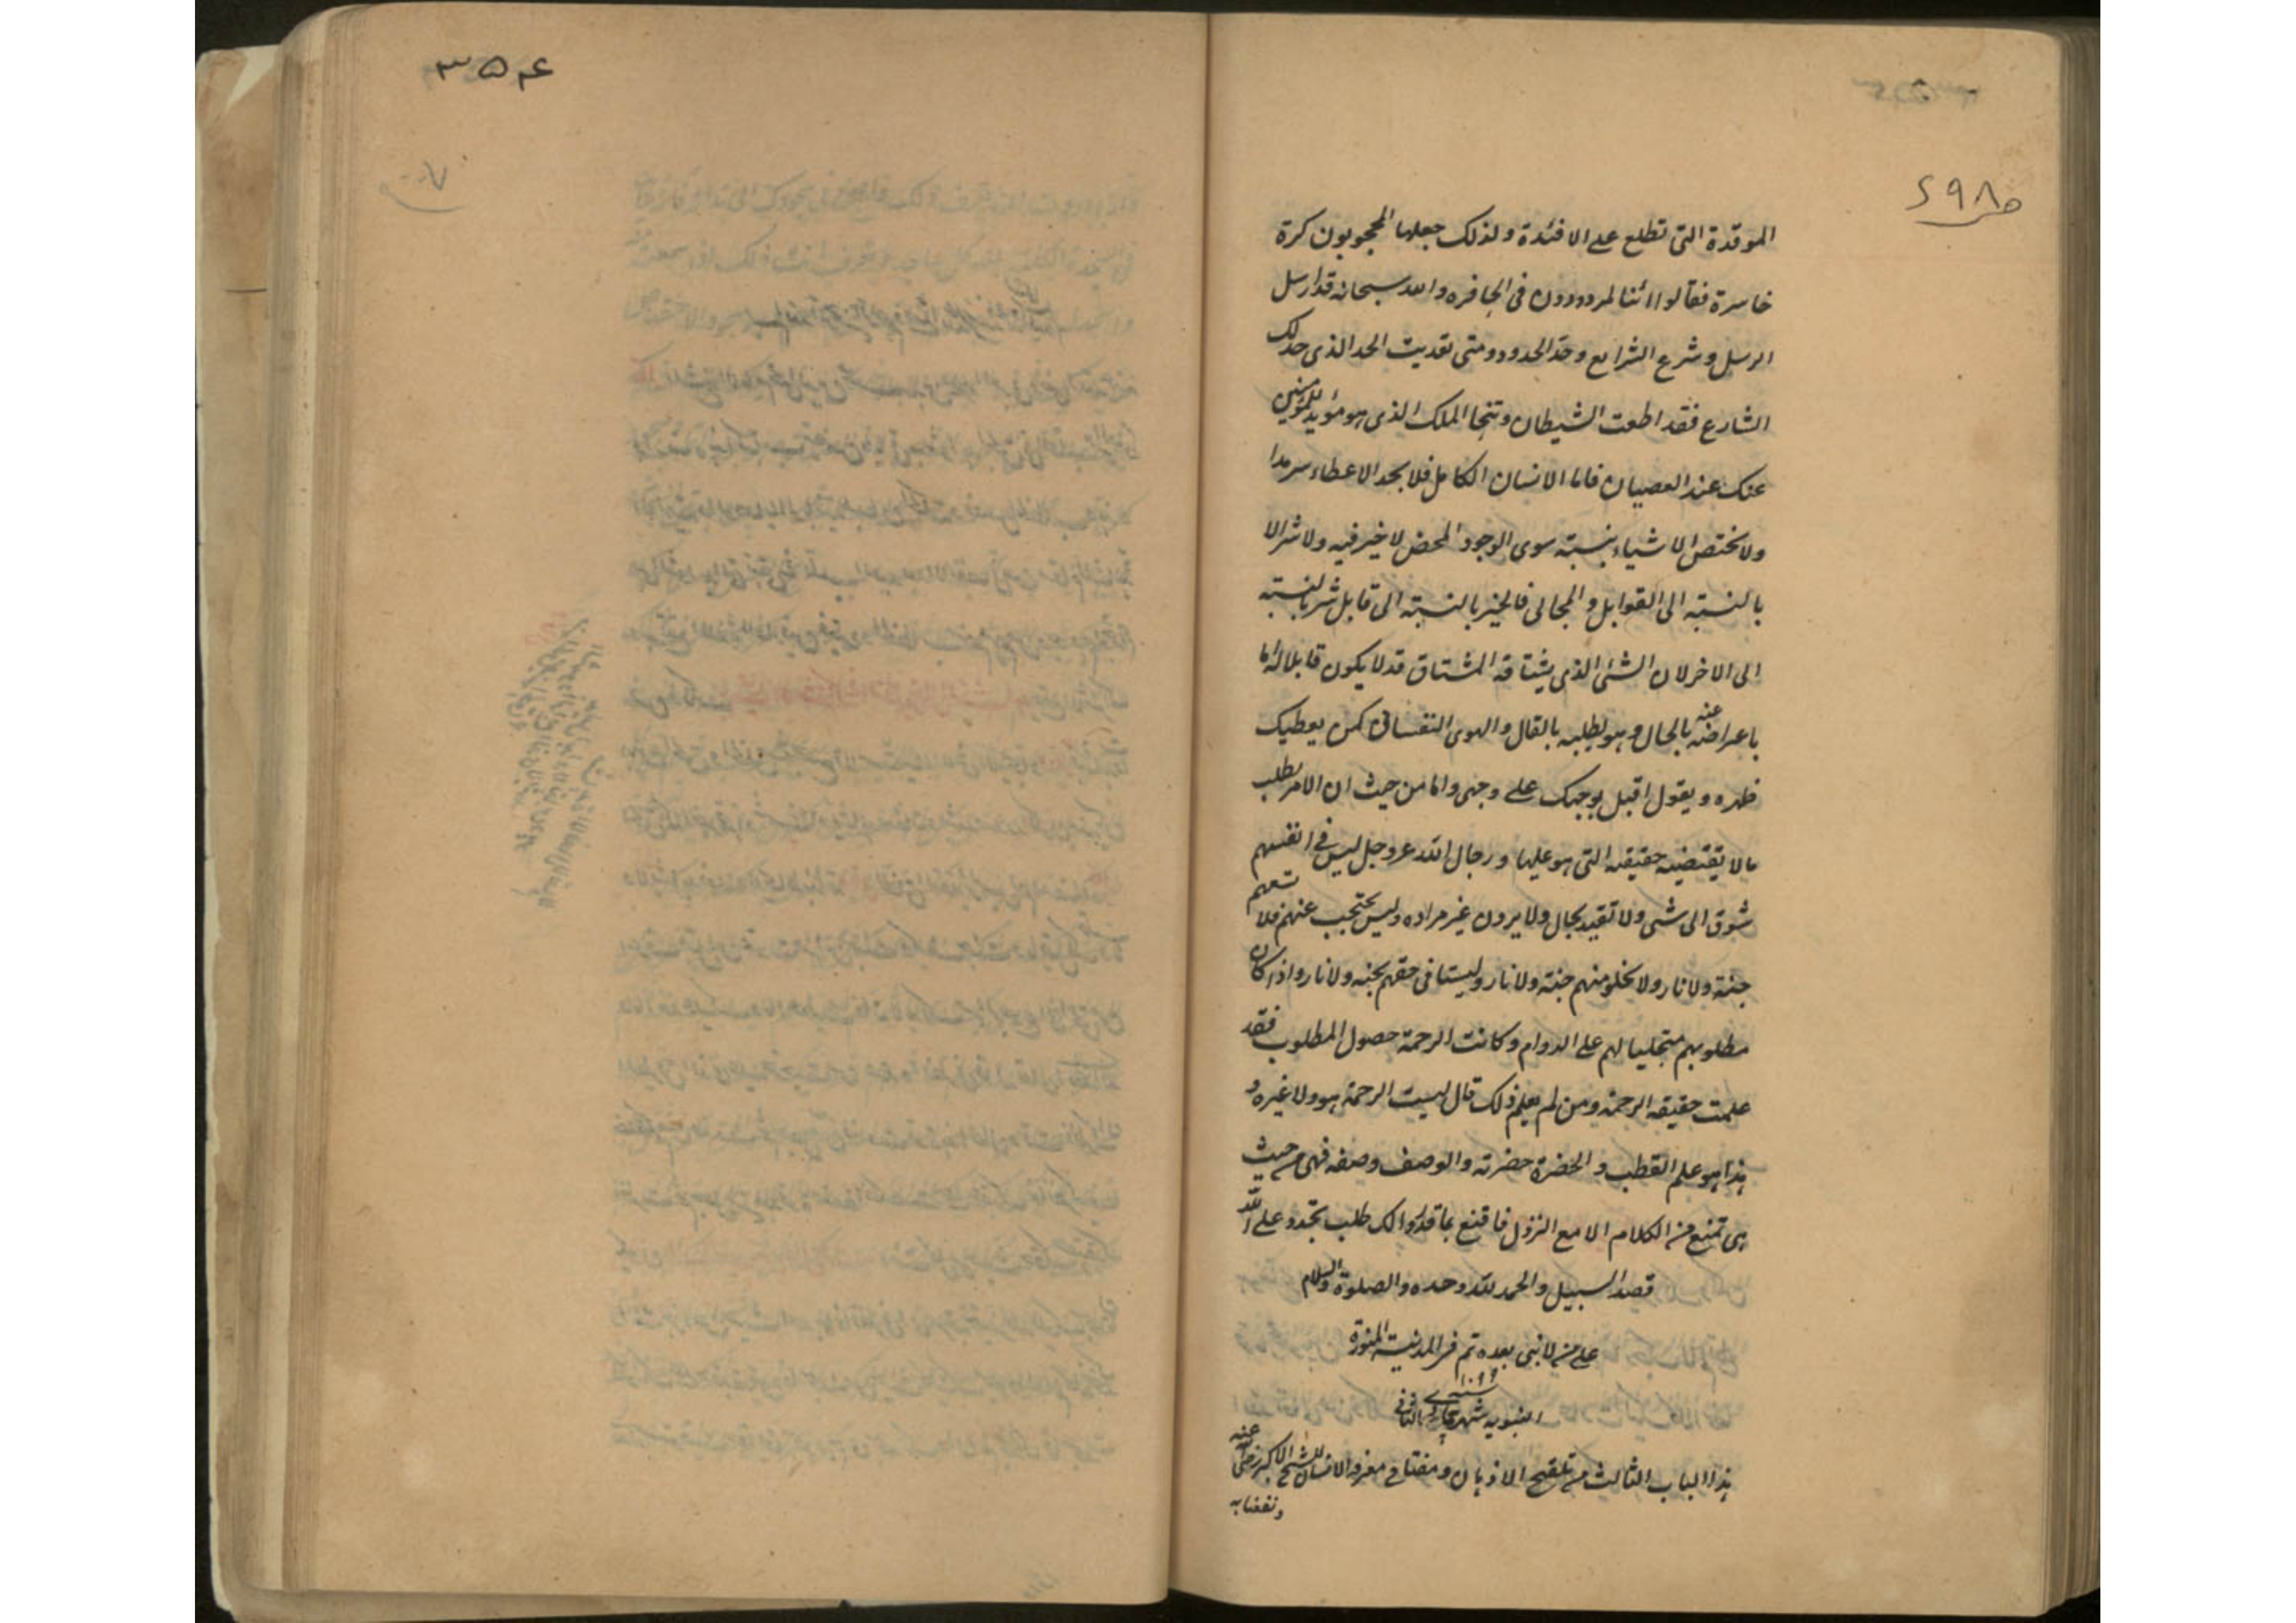 ص ٦٩٨
الموقدة التى تطلع على الافئدة ولذلك جعلها المحجوبون كرة
خاسرة فقالوا ائنا لمردودون فى الحافره والله سبحانه قد ارسل
الرسل وشرع الشرايع وحد الحدود ومتى تعديت الحد الذى حد لك
الشارع فقد اطعت الشيطان وتنحا الملك الذى هو مؤيد للمؤمنين
عنك عند العصيان فاما الانسان الكامل فلا يجد الا عطاء سرمدا
ولا تختص الاشياء بنسبته سوى الوجود المحض لا خير فيه ولا شر الا
بالنسبته الى القوابل والمجالى فالخير بالنسبته الى قابل شر بالنسبته
الى الاخر لان الشئ الذى يشتاقه المشتاق قد لا يكون قابلا له اما
باعراضه عنه بالحال وهو يطلبه بالقال والهوى النفسانى كمن يعطيك
ظهره ويقول اقبل بوجهك على وجهى واما من حيث ان الامر يطلب
مالا يقتضيه حقيقته التى هو عليها ورجال الله عز وجل ليس فى انفسهم
شوق الى شئ ولا تقيد بحال ولا يرون غير مراده وليس يحتجب عنهم فلا تسعهم
جنة ولا نار ولا تخلو منهم جنة ولا نار وليستا فى حقهم بجنه ولا نار واذا كان
مطلوبهم متجليا لهم على الدوام وكانت الرحمة حصول المطلوب فقد
علمت حقيقه الرحمة ومن لم يعلم ذلك قال ليست الرحمة هو ولا غيره و
هذا هو علم القطب والحضرة حضرته والوصف وصفه فهى من حيث
هى تمنع من الكلام الا مع النزول فاقنع بما قد لك طلب تجده وعلى الله
قصد السبيل والحمد لله وحده والصلوة والسلام
على من لا نبى بعده تم فى المدينة المنورة
النبويه شهر الثانى سنه ١٠٩٩
هذا الباب الثالث من تلقيح الاذهان ومفتاح معرفه الانسان للشيخ الاكبر رضى الله عنه
ونفعنا به
٣٥٤
٧٠٠